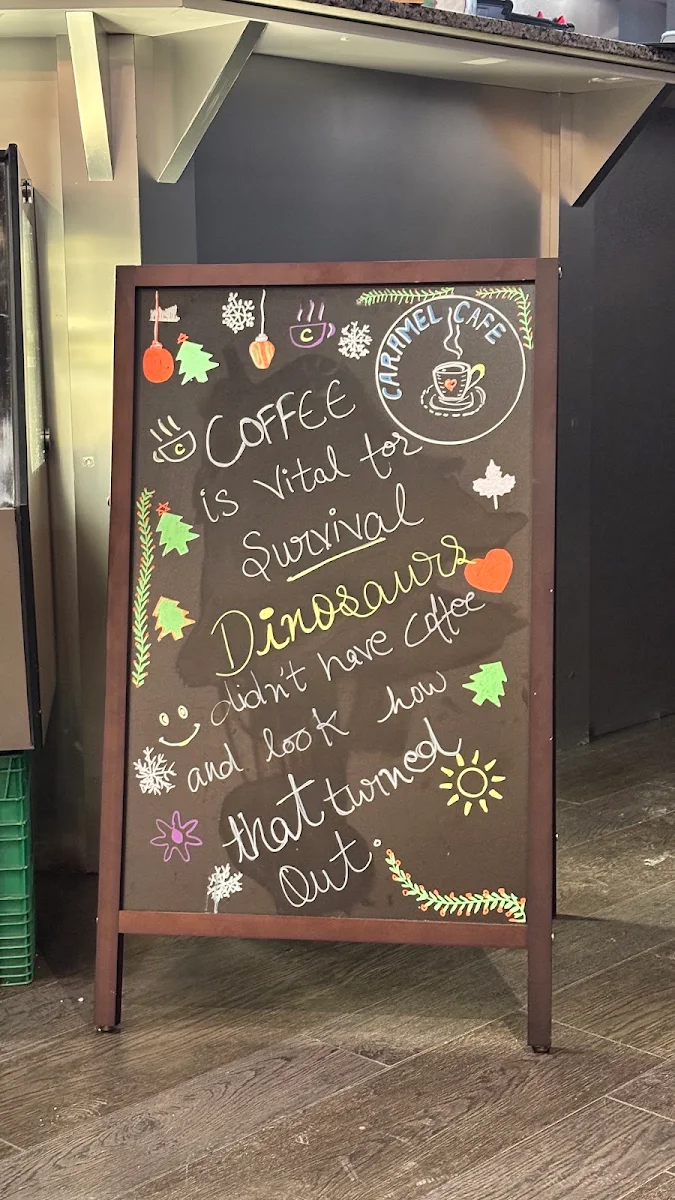 CARAMEL CAFE
C
C
COFFEE
is Vital for
Survival
Dinosaurs
didn't have coffee
and look how
that turned
Out.